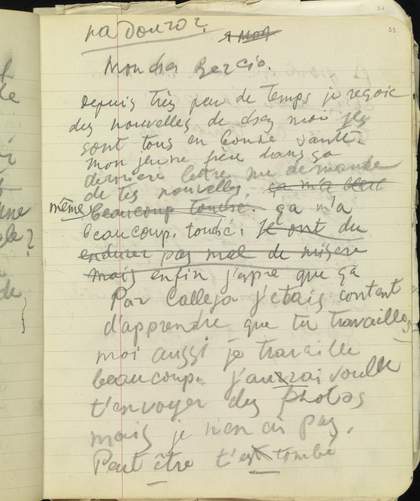 Mon cher Bercio.
Depuis très peu de temps je reçois
des nouvelles de chez moi ils
sont tous en bonne santé.
mon jeune frère dans sa
dernière lettre me demande
de tes nouvelles, ça m'a
même beaucoup touché. ça m'a
beaucoup touché. Ils ont du
endurer pas mal de misère
mais enfin j'espre que ça
Par Calleja j'etais content
d'apprendre que tu travailles
moi aussi je travaille
beaucoup. j'aurai voulu
t'envoyer des photos
mais je n'en ai pas.
Peut être t'est tombé